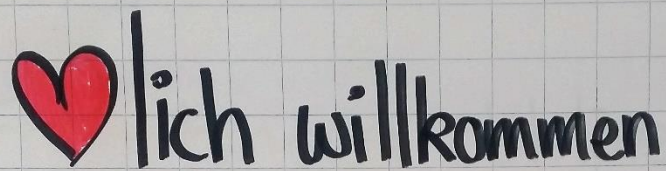 ❤lich willkommen